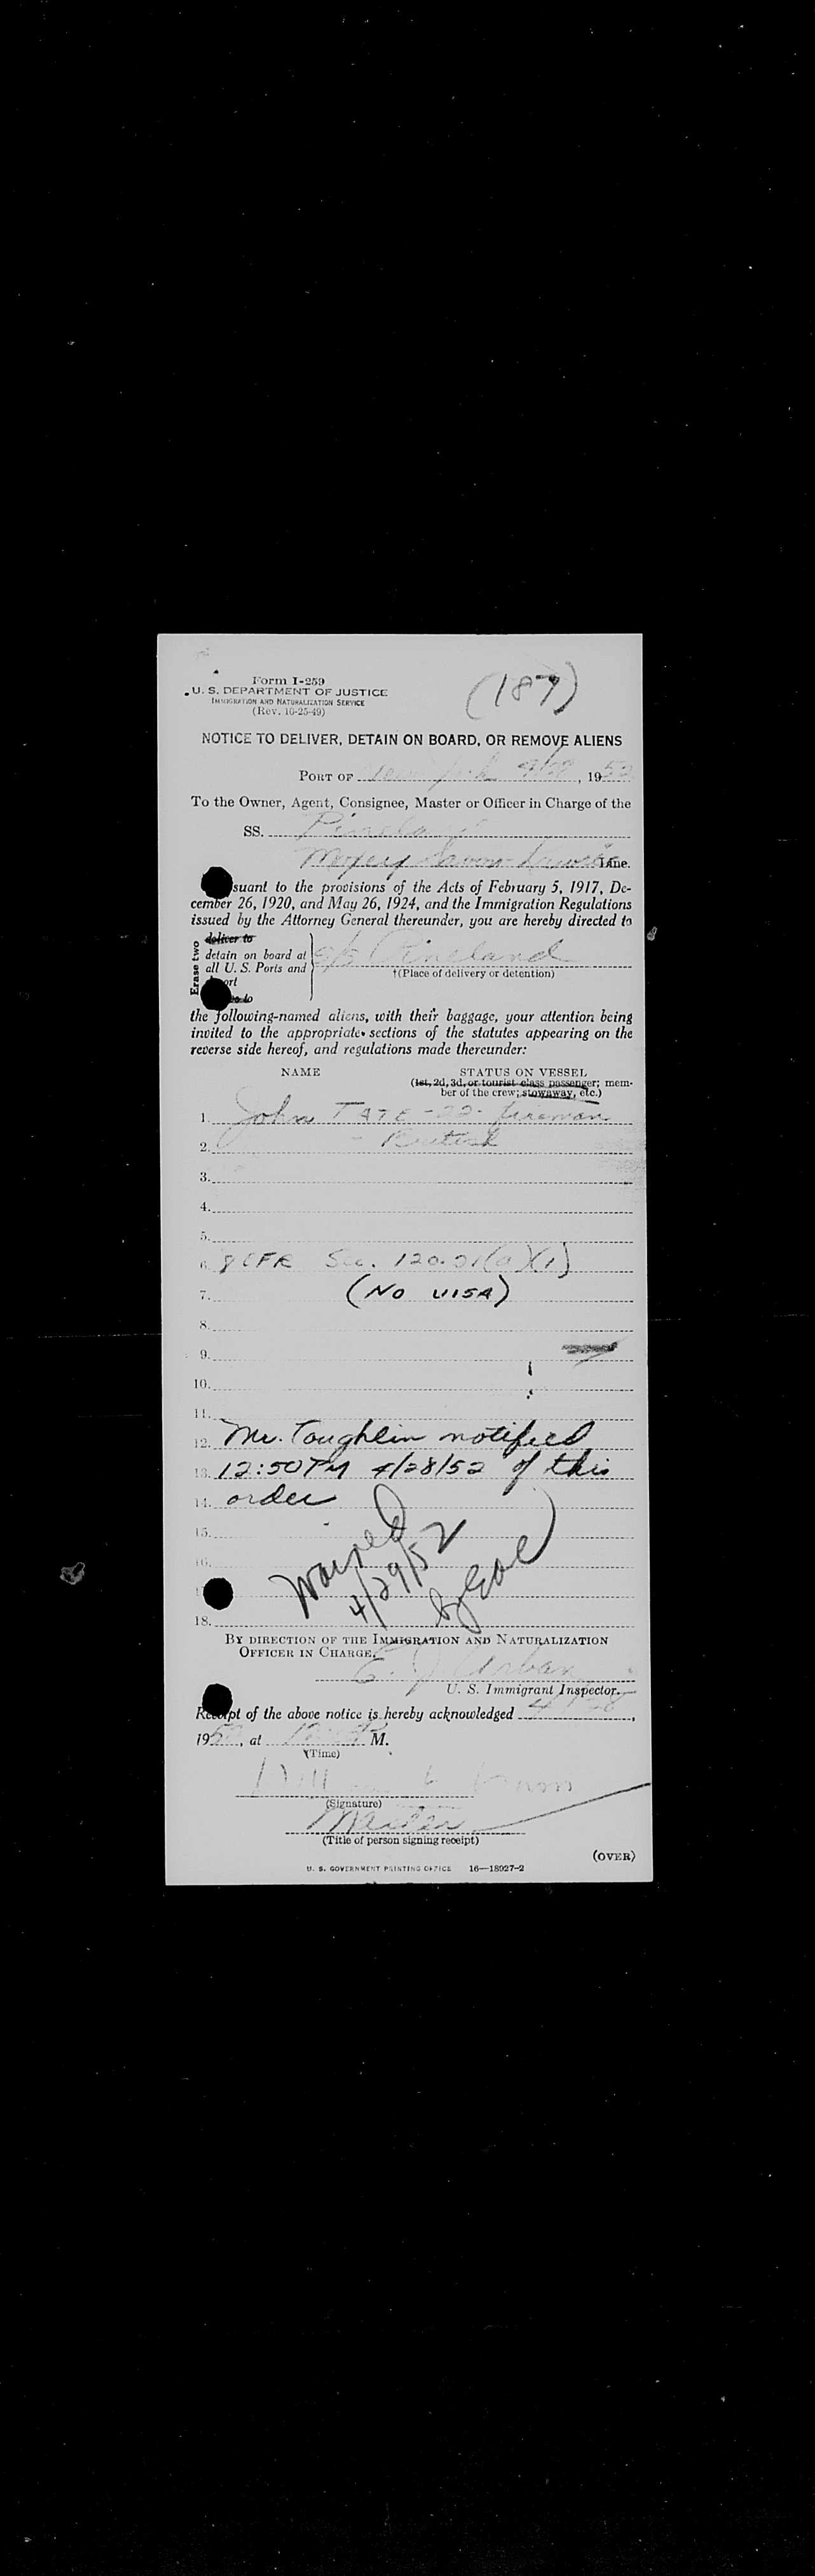 Form I-259
U. S. DEPARTMENT OF JUSTICE
IMMIGRATION AND NATURALIZATION SERVICE
(Rev. 10-25-49)
(187)
NOTICE TO DELIVER, DETAIN ON BOARD, OR REMOVE ALIENS
PORT OF New York 4/28, 1952
To the Owner, Agent, Consignee, Master or Officer in Charge of the
SS. Pineland
Line.
suant to the provisions of the Acts of February 5, 1917, De-
cember 26, 1920, and May 26, 1924, and the Immigration Regulations
issued by the Attorney General thereunder, you are hereby directed to
Erase two
deliver to
detain on board at
all U. S. Ports and
ort
to
S/S Pineland
†(Place of delivery or detention)
the following-named aliens, with their baggage, your attention being
invited to the appropriate sections of the statutes appearing on the
reverse side hereof, and regulations made thereunder:
NAME
STATUS ON VESSEL
(1st, 2d, 3d, or tourist class passenger; mem-
ber of the crew; stowaway, etc.)
1. John TATE - 22 - fireman
2. - British
3.
4.
5.
6. 8 CFR Sec. 120.21(a)(1)
7. (No VISA)
8.
9.
10.
11.
12. Mr. Coughlin notified
13. 12:50 PM 4/28/52 of this
14. order
15.
16.
Waived
4/29/52
by
18.
BY DIRECTION OF THE IMMIGRATION AND NATURALIZATION
OFFICER IN CHARGE.
E. J. Urban
U. S. Immigrant Inspector.
Receipt of the above notice is hereby acknowledged 4/28,
1952, at M.
(Time)
(Signature)
Master
(Title of person signing receipt)
(OVER)
U. S. GOVERNMENT PRINTING OFFICE 16—18927-2